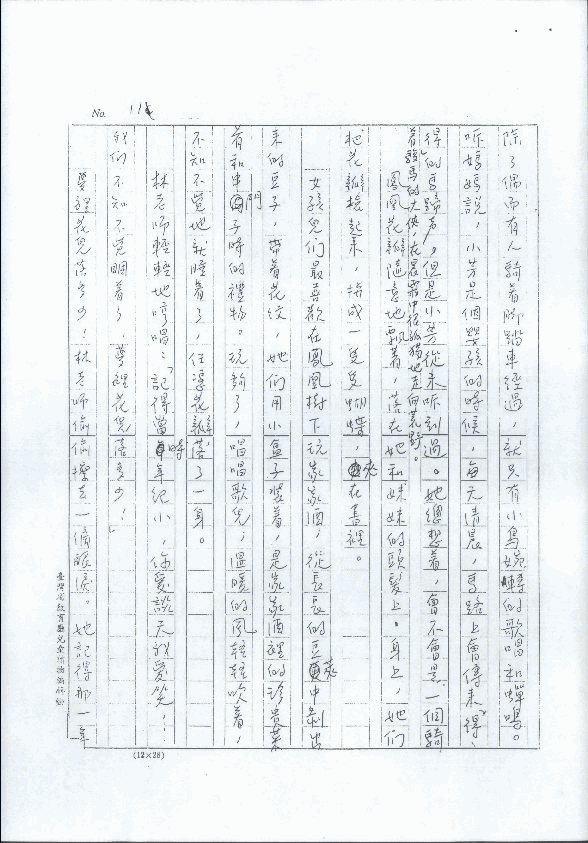 No. 11
除了偶而有人騎着腳踏車經過，就只有小鳥婉轉的歌唱和蟬鳴。
听媽媽說，小芳是個嬰孩的時候，每天清晨，馬路上會傳來「得、
得」的馬蹄声。但是小芳從未听到過。她總想着，會不會是一個騎
着駿馬的大俠，在晨霧中很孤獨地走向荒野。
鳳凰花瓣隨意地飄着，落在她和妹妹的頭髮上。身上，她们
把花瓣撿起來，拼成一隻隻蝴蝶，夾在書裡。
女孩兒们最喜歡在鳳凰樹下玩家家酒，從長長的豆莢中剝出
來的豆子，帶着花紋，她们用小盒子裝着，是家家酒裡的珍貴菜
肴和串門子時的禮物。玩夠了，唱唱歌兒，溫暖的風輕輕吹着，
不知不覺地就睡着了，任憑花瓣落了一身。
林老師輕輕地哼唱：「記得當時年紀小，你愛談天我愛笑，…
我们不知不覺睏着了，夢裡花兒落多少！」
夢裡花兒落多少，林老師偷偷擦去一滴眼淚。她記得那一年
(12×28)